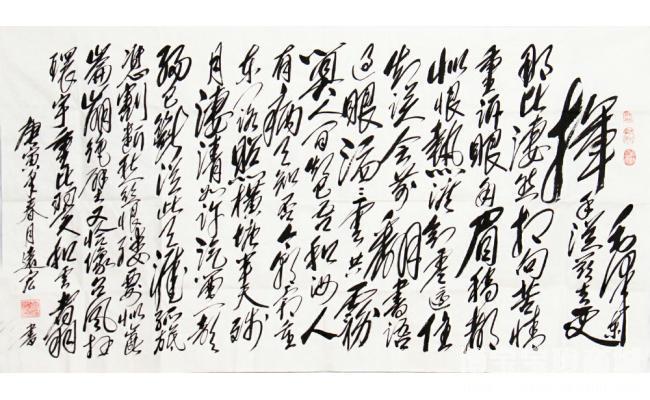 毛泽东
揮
手從兹去更
那堪淒然相向苦情
重訴眼角眉梢都
似恨熱淚欲零還住
知誤會前番書語
過眼滔滔雲共霧
算人間知己吾和汝人
有病天知否今朝霜重
東门路照横塘半天残
月淒清如許汽笛一聲
腸已斷從此天涯孤旅
憑割斷愁絲恨縷要似崑
崙崩絕壁又恰像台風扫
環宇重比翼和雲翥
庚寅年春月書